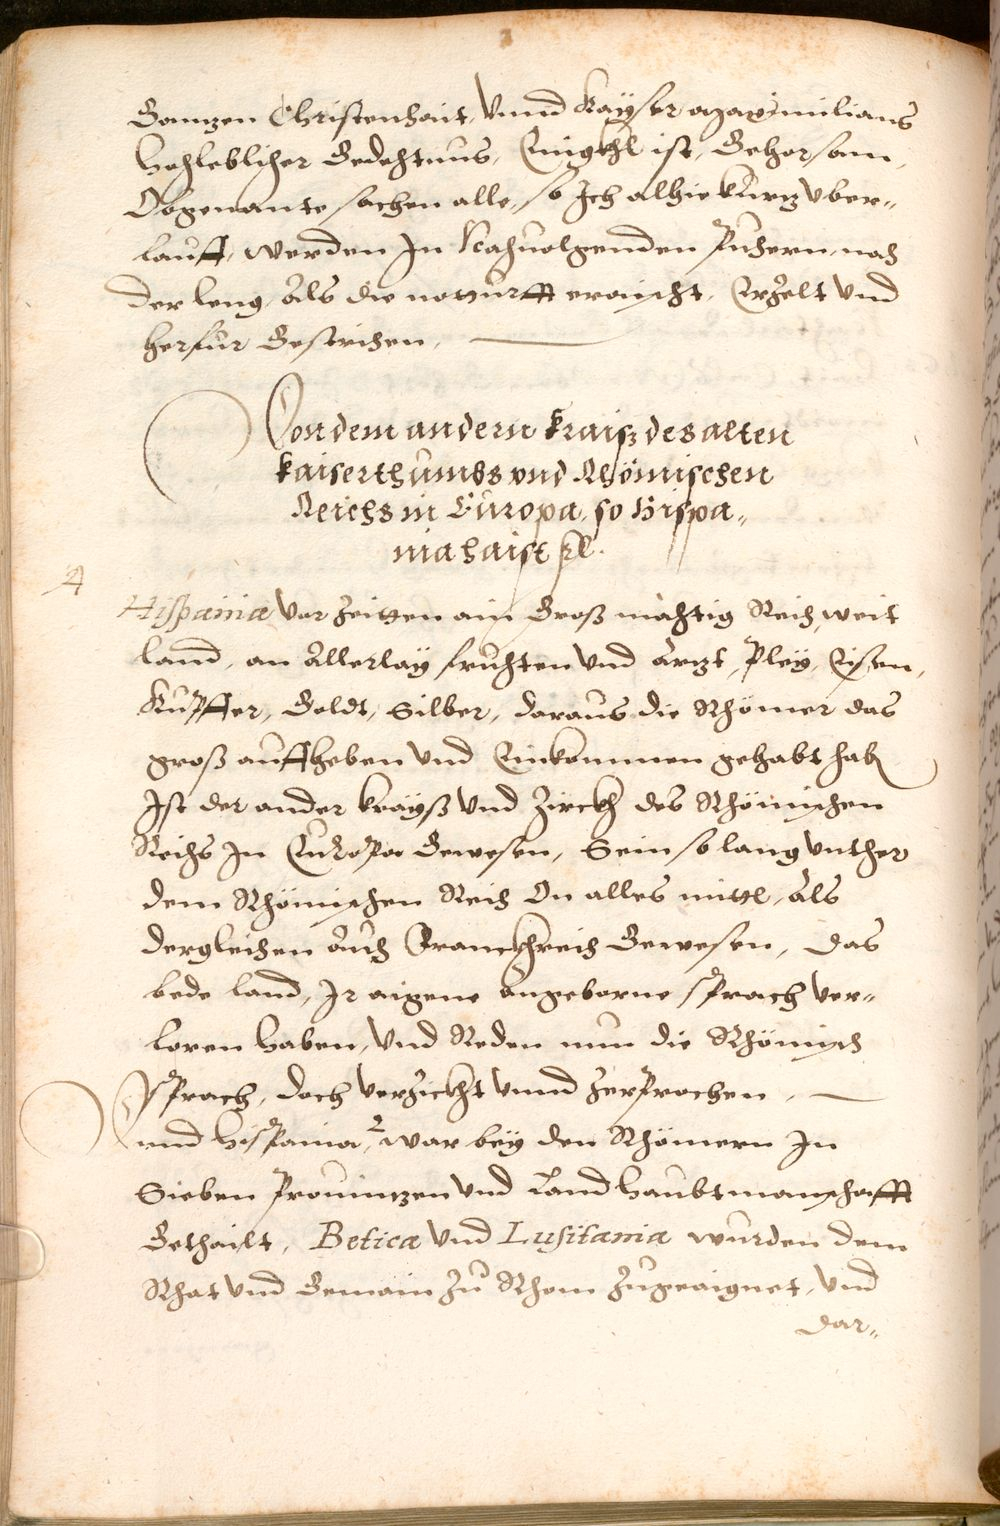 Ganntzen Christenhait, vnnd Kayser Maximilians
hohleblicher Gedechtnus, Ainigkhl ist, Gehorsam,
Obgenante sachen alle, so Ich alhie kurtz vber-
lauff, werden In Nachuolgenden Puchern, nach
der leng, als die notturfft eraischt, Erzelt vnd
herfur Gestrichen,
Von dem andern kraisz des alten
kaiserthumbs vnd Rhömischen
Reichs in Europa, so Hispa-
nia haist
Hispania vor Zeitten ain Groß mächtig Reich, weit
land, an Allerlay fruchten vnd ärtzt, Pley, Eisen,
Kupffer, Goldt, Silber, daraus die Rhömer das
groß auffheben vnd Einkommen gehabt hab
Ist der ander krayß vnd Zirckh des Rhömischen
Reichs In Europa Gewesen, Sein so lang vnther
dem Rhömischen Reich On alles mittl, als
dergleichen Auch Franckhreich Gewesen, Das
bede land, Ir aigene angeborne sprach ver-
loren haben, Vnd Reden nun die Rhömisch
Sprach, doch verzickht vnnd Zersprochen,
vnd Hispania, war bey den Rhömern In
Sieben Prouintzen vnd Land haubtmanschafft
Gethailt, Betica vnd Lusitania wurden dem
Rhat vnd Gemain Zu Rhom Zugeaignet, vnd
dar-